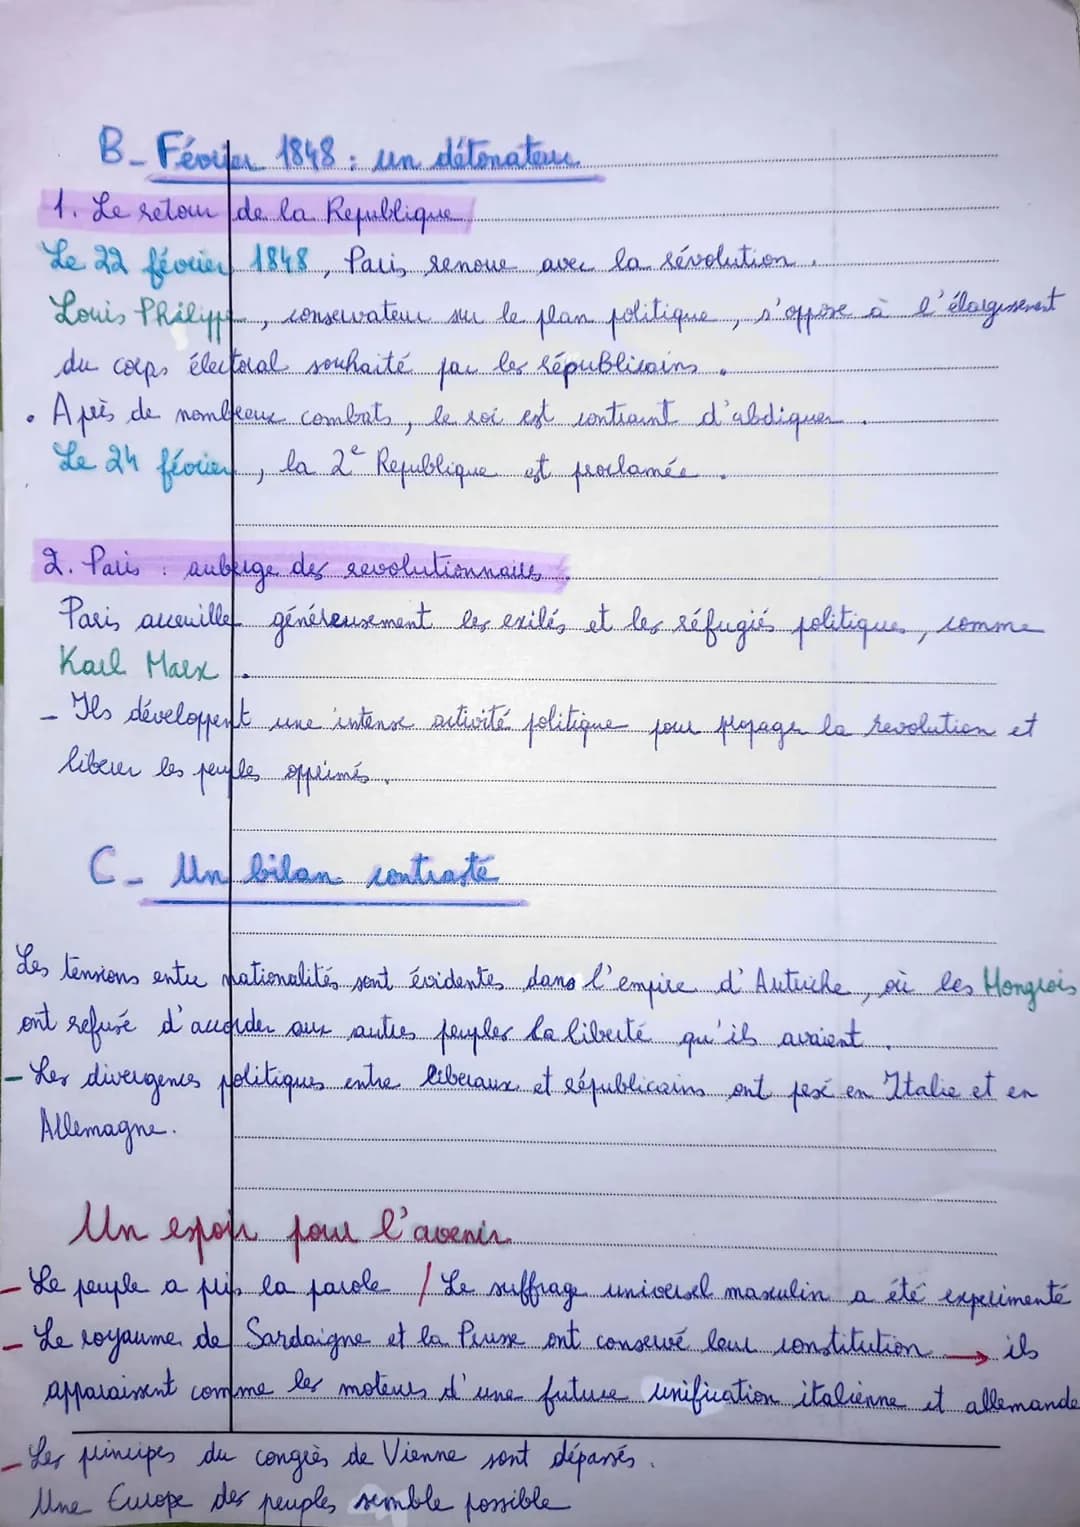 B_ Février 1848 : un détonateur
1. Le retour de la Republique
Le 22 février 1848, Paris renoue avec la révolution.
Louis Philippe, conservateur sur le plan politique, s'oppose à l'élargissement
du corps électoral souhaité par les républicains.
. Après de nombreux combats, le roi est contraint d'abdiquer.
Le 24 février, la 2e Republique est proclamée.
2. Paris : auberge des revolutionnaires.
Paris accueille généreusement les exilés et les réfugiés politiques, comme
Karl Marx.
_ Ils développent une intense activité politique pour propager la revolution et
liberer les peuples opprimés.
C_ Un bilan contrasté
Les tensions entre nationalités sont évidentes dans l'empire d'Autriche, où les Hongrois
ont refusé d'accorder aux autres peuples la liberté qu'ils avaient.
- Les divergences politiques entre liberaux et républicains ont pesé en Italie et en
Allemagne.
Un espoir pour l'avenir
- Le peuple a pris la parole / Le suffrage universel masculin a été experimenté
- Le royaume de Sardaigne et la Prusse ont conservé leur constitution → ils
apparaissent comme les moteurs d'une future unification italienne et allemande
- Les principes du congrès de Vienne sont dépassés.
Une Europe des peuples semble possible